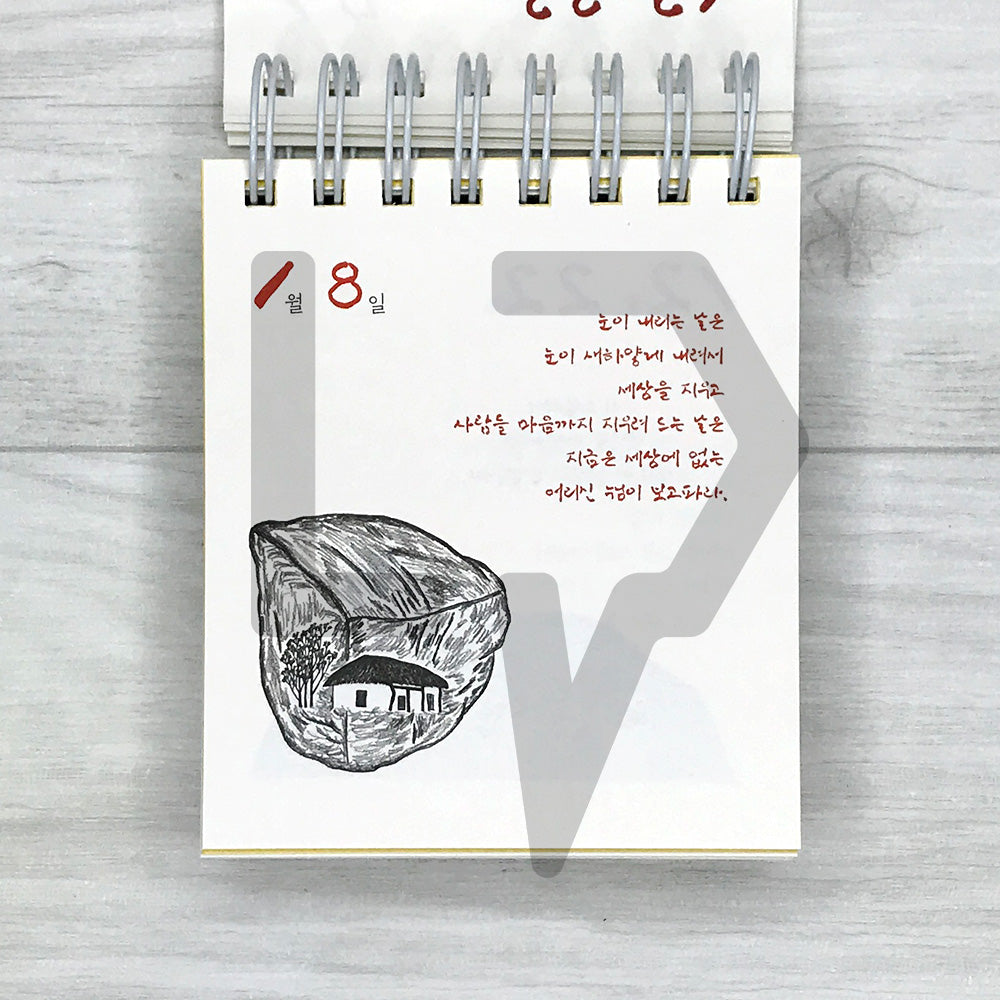 1월 8일
눈이 내리는 날은
눈이 새하얗게 내려서
세상을 지우고
사람들 마음까지 지우려 드는 날은
지금은 세상에 없는
어리신 누님이 보고파라.